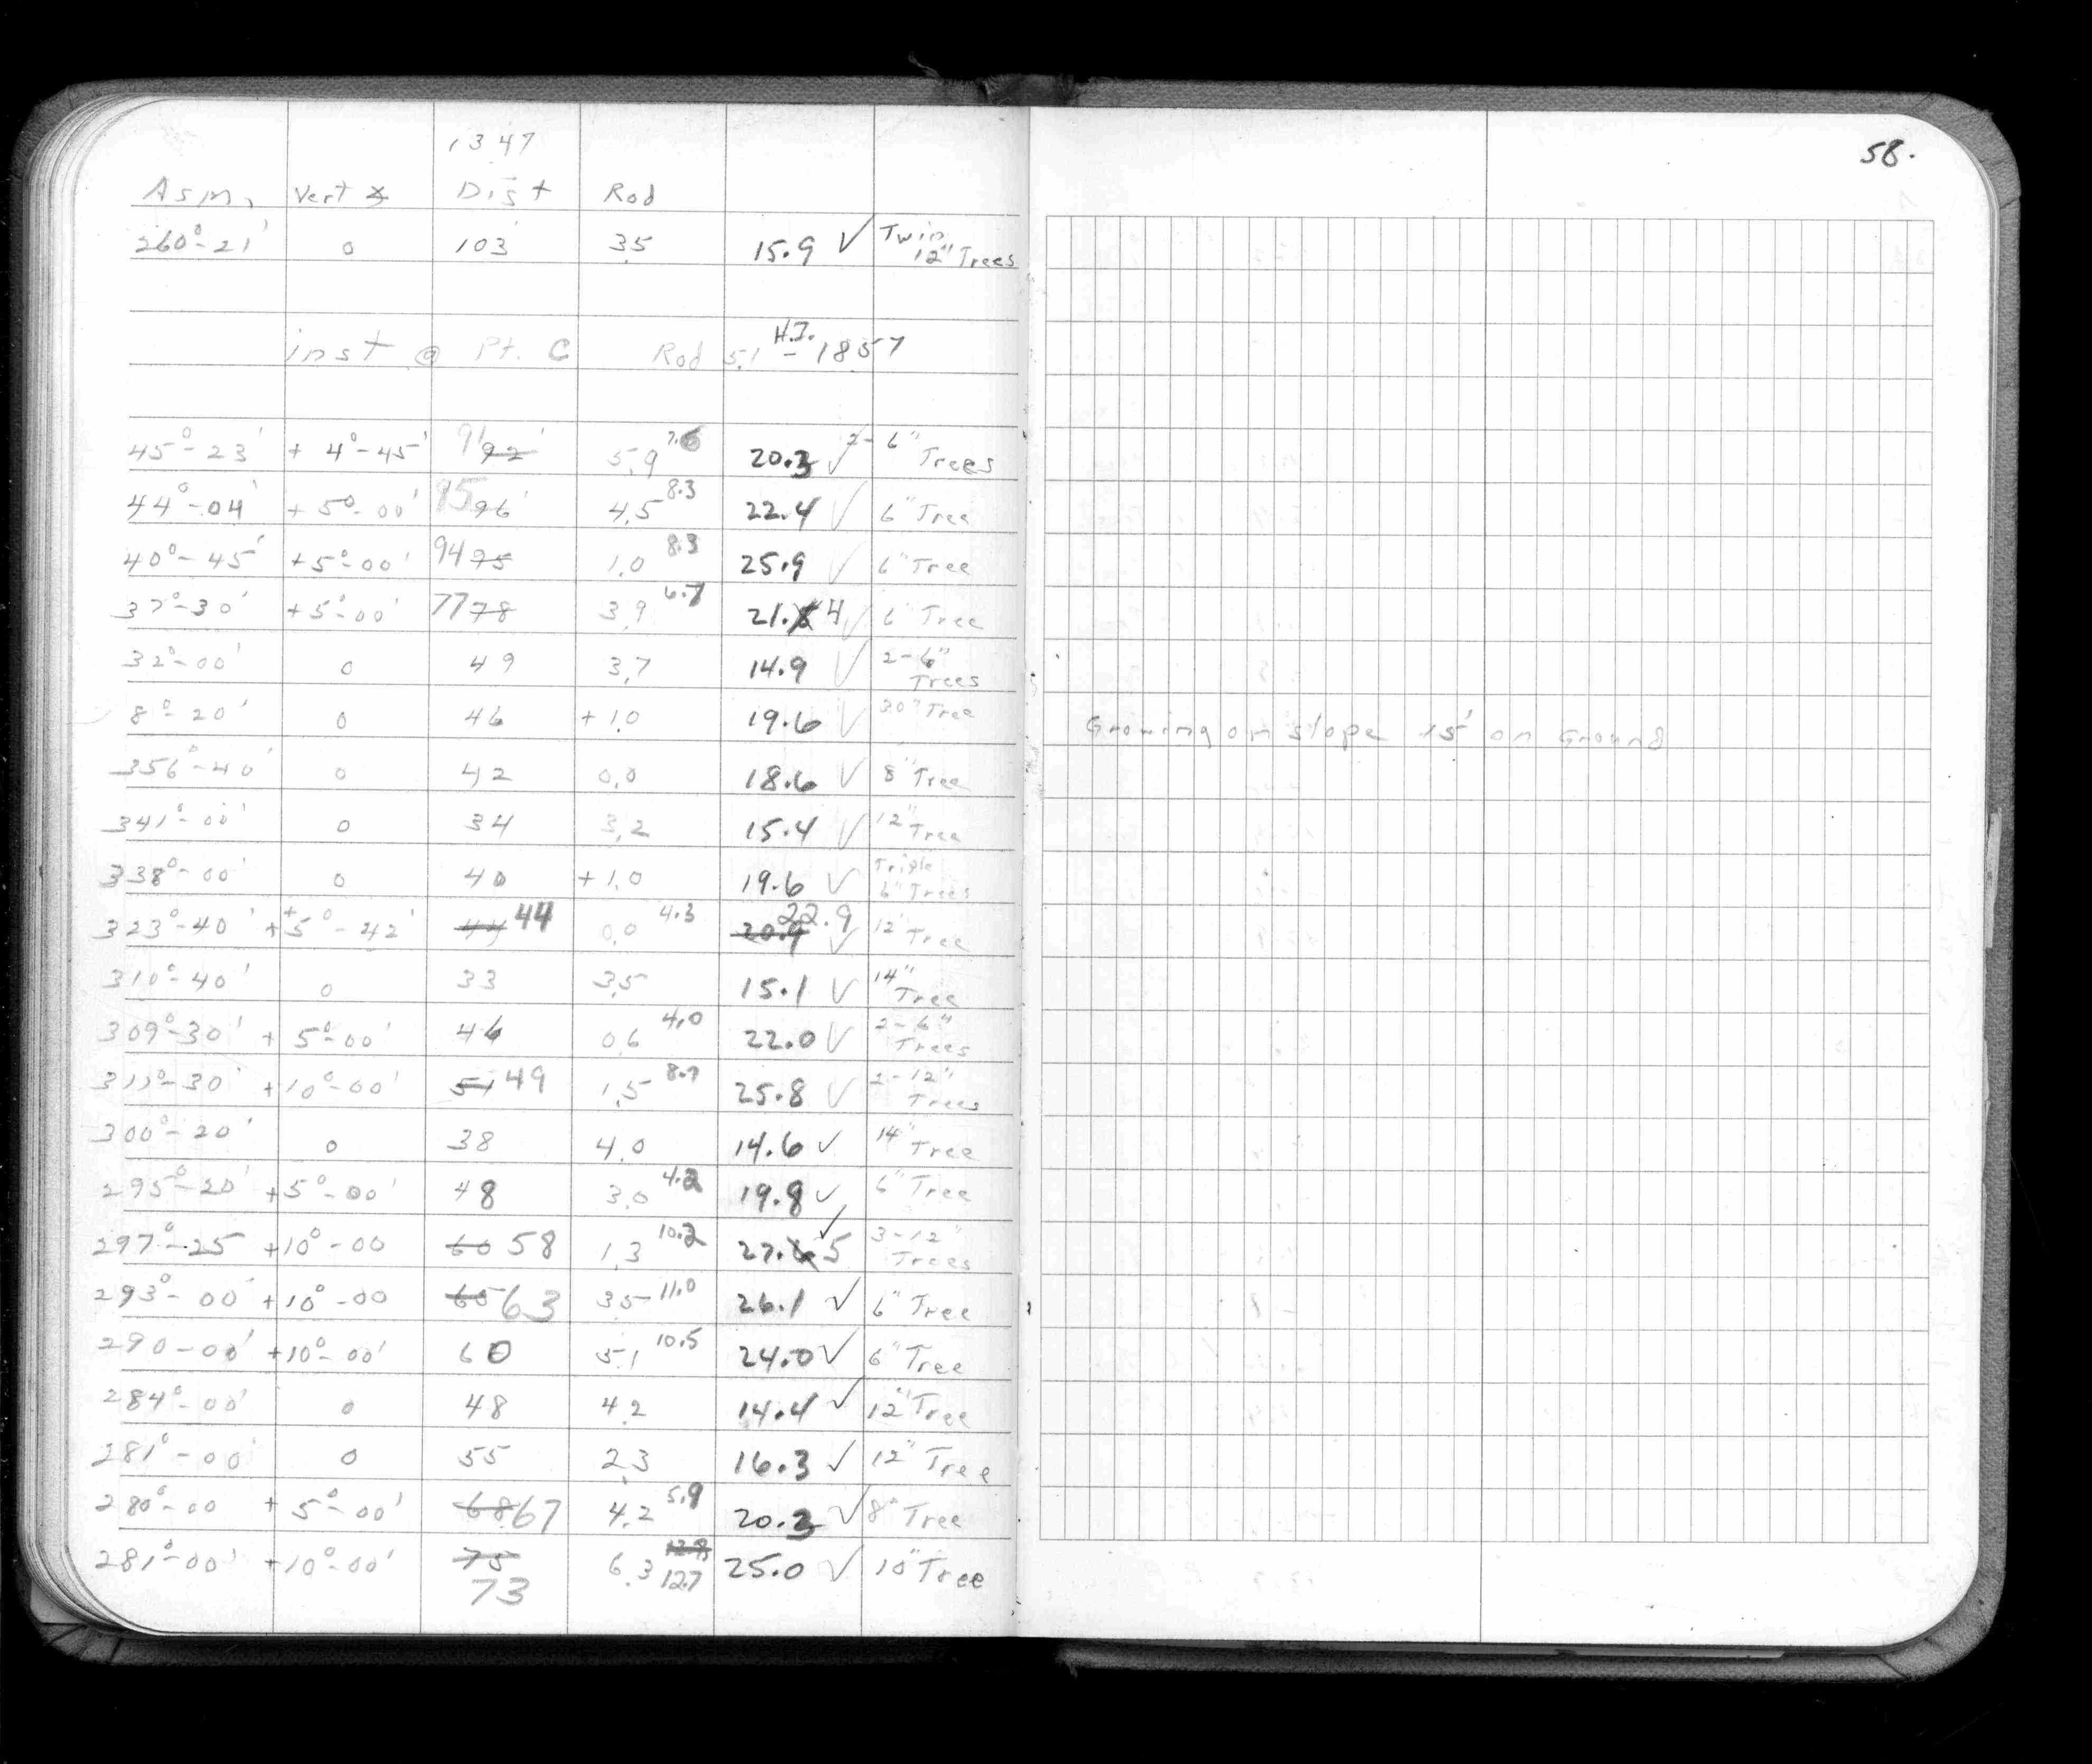 58.
13 47
Asm, Vert ∡ Dist Rod
260°-21' 0 103' 3.5 15.9 ✓ Twin 12" Trees
inst @ Pt. C Rod 5.1 - H.I. 18.57
45°-23' + 4°-45' 91 92' 5.9 7.6 20.3 ✓ 2-6" Trees
44°-04' + 5°-00' 95 96' 4.5 8.3 22.4 ✓ 6" Tree
40°-45' +5°-00' 94 95 1.0 8.3 25.9 ✓ 6" Tree
37°-30' +5°-00' 77 78 3.9 6.7 21.4 ✓ 6" Tree
32°-00' 0 49 3.7 14.9 ✓ 2-6" Trees
8°-20' 0 46 +1.0 19.6 ✓ 30" Tree Growing on slope 15' on Ground
356°-40' 0 42 0.0 18.6 ✓ 8" Tree
341°-00' 0 34 3.2 15.4 ✓ 12" Tree
338°-00' 0 40 +1.0 19.6 ✓ Triple 6" Trees
323°-40' + 5°-42' 44 44 0.0 4.3 20.9 22.9 ✓ 12" Tree
310°-40' 0 33 3.5 15.1 ✓ 14" Tree
309°-30' + 5°-00' 46 0.6 4.0 22.0 ✓ 2-6" Trees
311°-30' +10°-00' 51 49 1.5 8.7 25.8 ✓ 2-12" Trees
300°-20' 0 38 4.0 14.6 ✓ 14" Tree
295°-20' +5°-00' 48 3.0 4.2 19.8 ✓ 6" Tree
297°-25 +10°-00 60 58 1.3 10.2 27.5 ✓ 3-12" Trees
293°-00' +10°-00 65 63 3.5 11.0 26.1 ✓ 6" Tree
290-00' +10°-00' 60 5.1 10.5 24.0 ✓ 6" Tree
284°-00' 0 48 4.2 14.4 ✓ 12" Tree
281°-00' 0 55 2.3 16.3 ✓ 12" Tree
280°-00 + 5°-00' 68 67 4.2 5.9 20.3 ✓ 8" Tree
281°-00' +10°-00' 75 73 6.3 12.7 25.0 ✓ 10" Tree